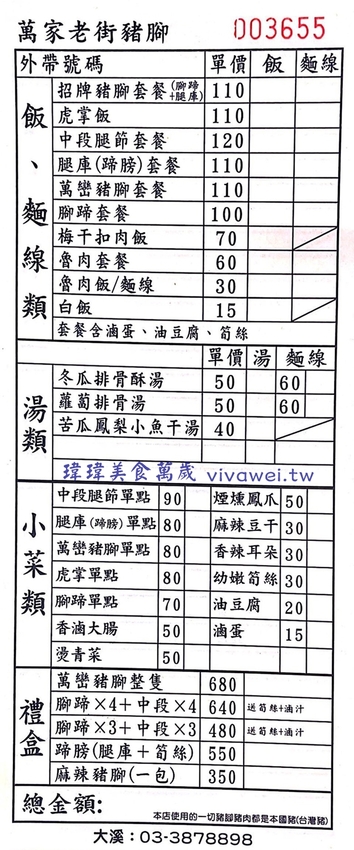 萬家老街豬腳 003655
外帶號碼 單價 飯 麵線
飯、麵線類
招牌豬腳套餐(腳蹄+腿庫) 110
虎掌飯 110
中段腿節套餐 120
腿庫(蹄膀)套餐 110
萬巒豬腳套餐 110
腳蹄套餐 100
梅干扣肉飯 70
魯肉套餐 60
魯肉飯/麵線 30
白飯 15
套餐含滷蛋、油豆腐、筍絲
湯類
單價 湯 麵線
冬瓜排骨酥湯 50 60
蘿蔔排骨湯 50 60
苦瓜鳳梨小魚干湯 40
瑋瑋美食萬歲 vivawei.tw
小菜類
中段腿節單點 90 煙燻鳳爪 50
腿庫(蹄膀)單點 80 麻辣豆干 30
萬巒豬腳單點 80 香辣耳朵 30
虎掌單點 80 幼嫩筍絲 30
腳蹄單點 70 油豆腐 20
香滷大腸 50 滷蛋 15
燙青菜 50
禮盒
萬巒豬腳整隻 680
腳蹄×4+中段×4 640 送筍絲+滷汁
腳蹄×3+中段×3 480 送筍絲+滷汁
蹄膀(腿庫+筍絲) 550
麻辣豬腳(一包) 350
總金額:
本店使用的一切豬腳豬肉都是本國豬(台灣豬)
大溪:03-3878898